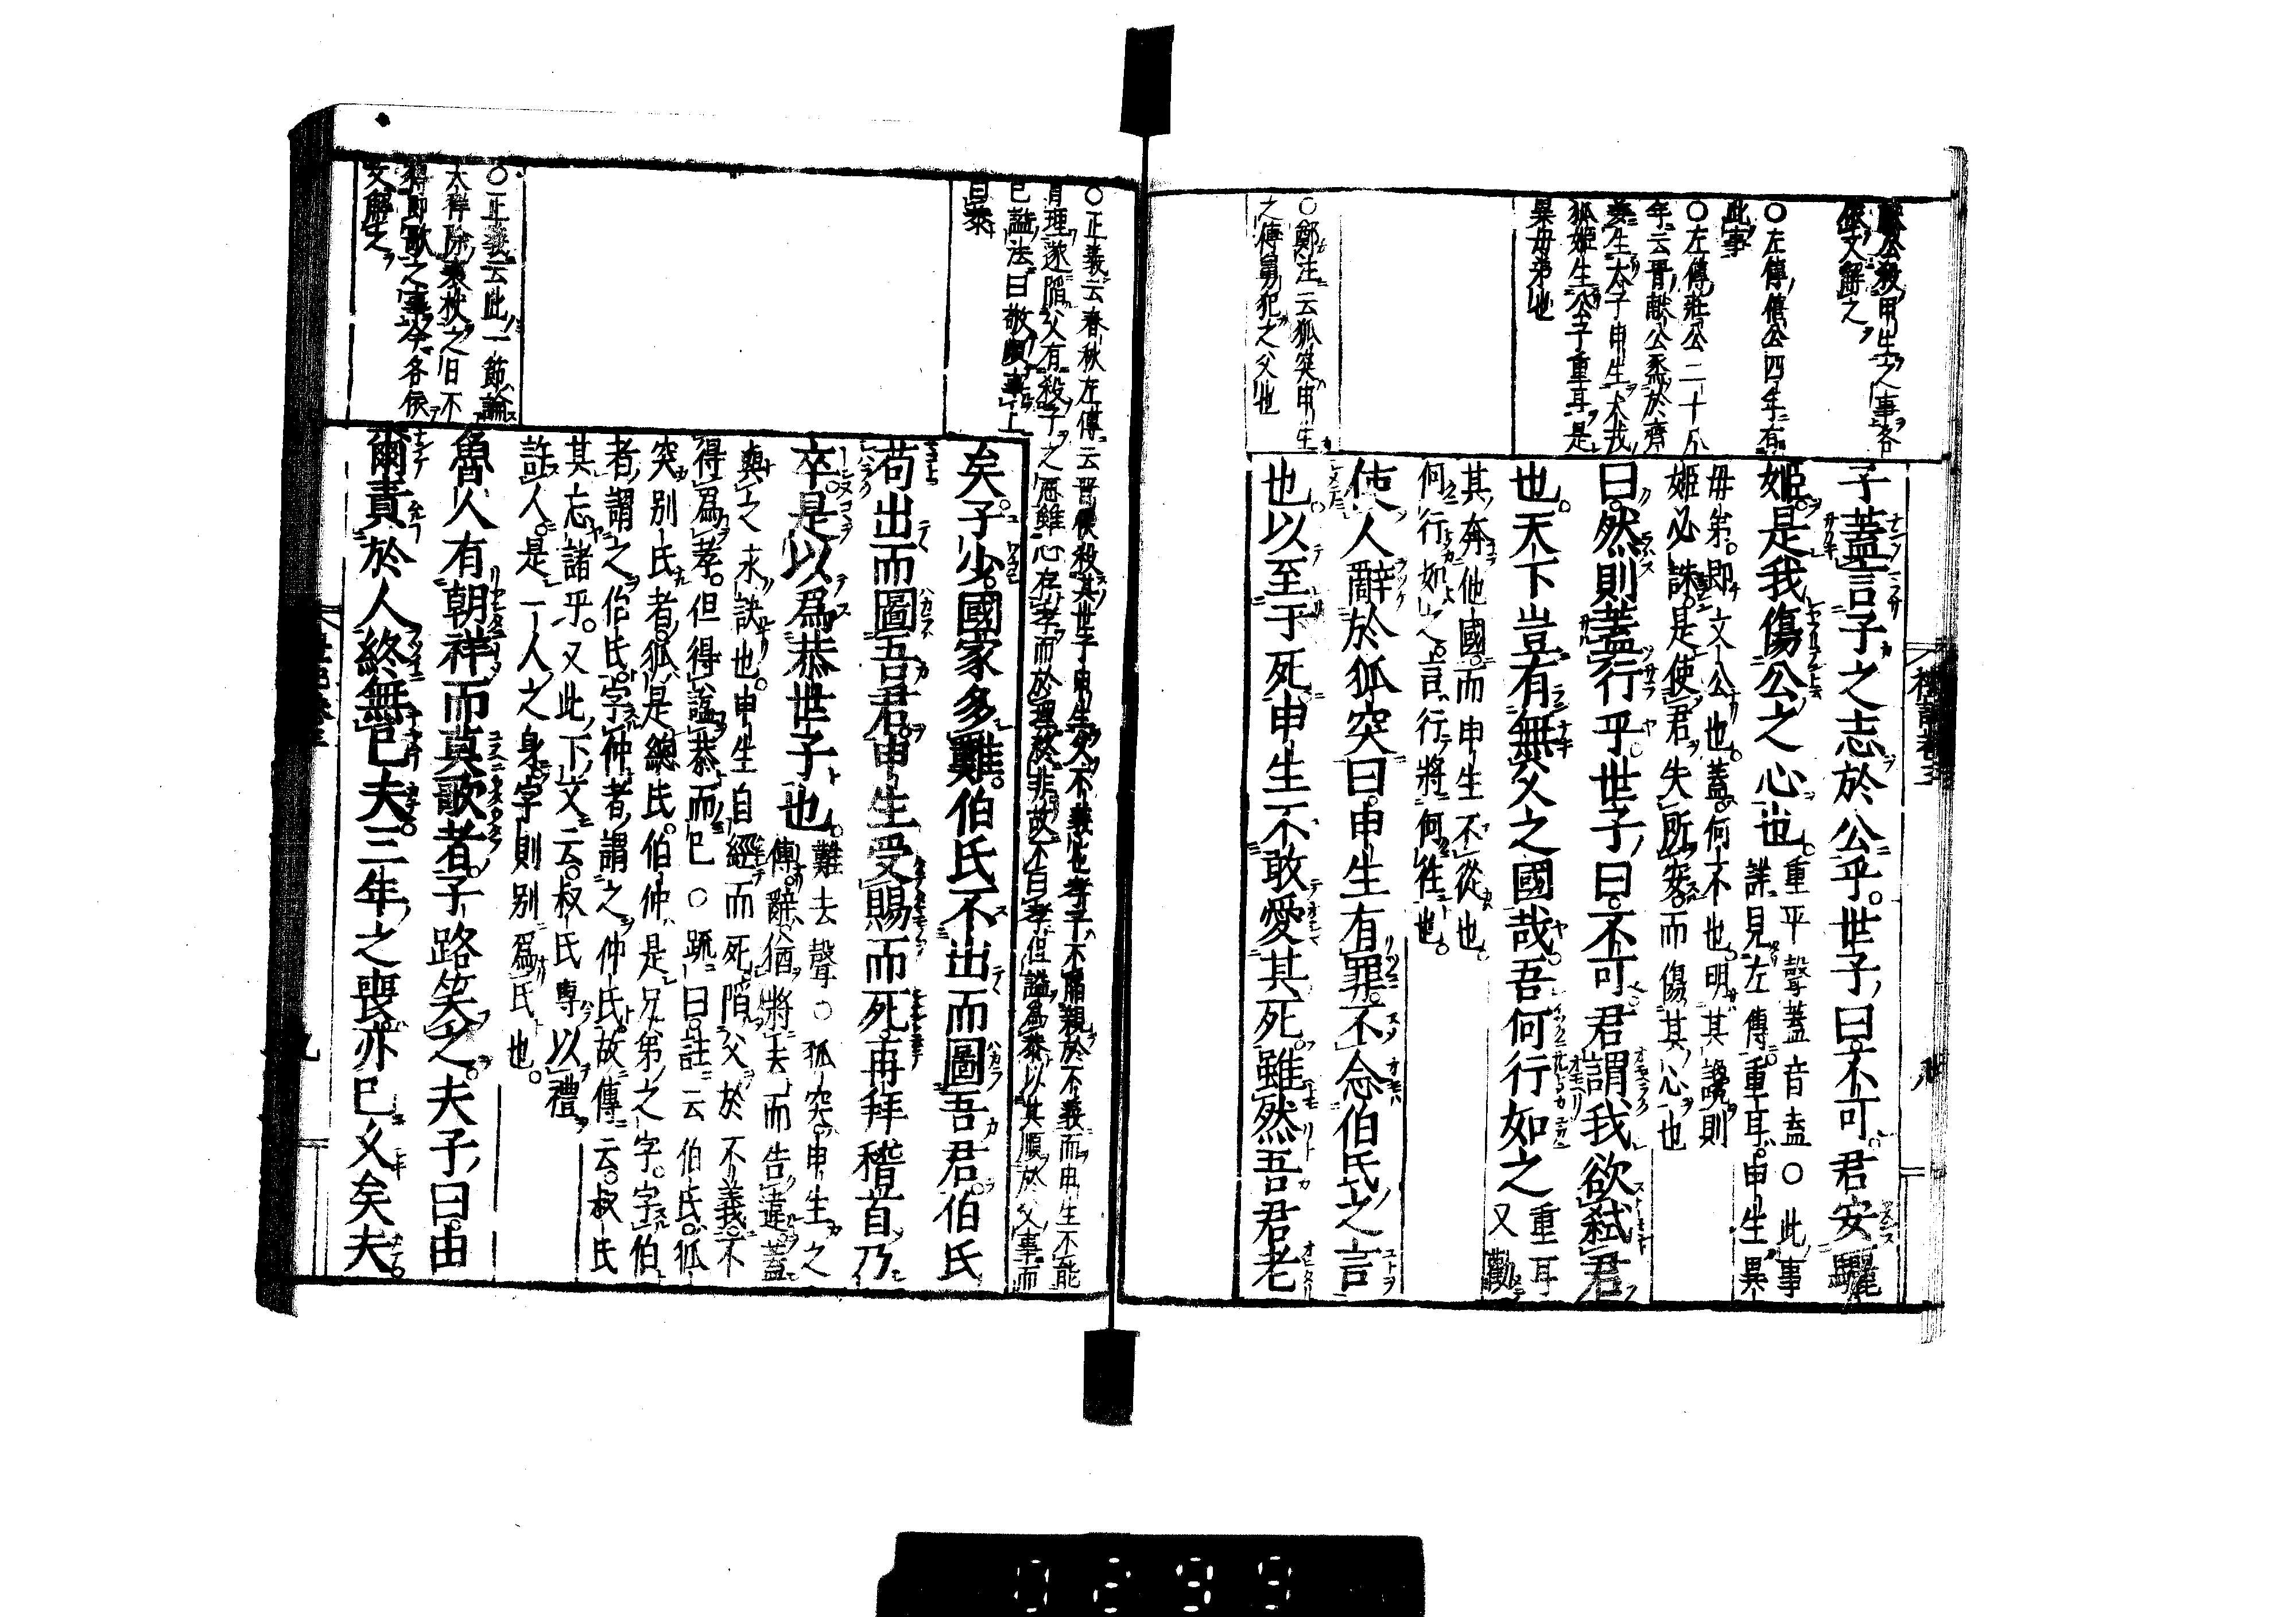 獻公殺申生之事各
依文解之
○左傳僖公四年有
此事
○左傳莊公二十八
年云晋獻公烝於齊
姜生太子申生大戎
狐姬生公子重耳是
異母弟也
○鄭注云狐突申生
之傅舅犯之父也
子蓋言子之志於公乎。世子曰不可。君安驪
姬。是我傷公之心也。重平聲蓋音盍○此事
詳見左傳。重耳。申生異
母弟。即文公也。蓋。何不也。明其讒則
姬必誅。是使君失所安。而傷其心也
曰。然則蓋行乎。世子曰。不可。君謂我欲弑君
也。天下豈有無父之國哉。吾何行如之重耳
又勸
其奔他國。而申生不從也。
何行如之。言行將何往也。
使人辭於狐突曰。申生有罪。不念伯氏之言
也。以至于死。申生不敢愛其死。雖然吾君老
禮記卷三
八
○正義云春秋左傳云晋侯殺其世子申生父不義也孝子不陷親於不義而申生不能
自理遂陷父有殺子之惡雖心存孝而於理終非故不曰孝但諡為恭以其順於父事而
已諡法曰敬順事上
曰恭
○正義云此一節論
大祥除衰杖之日不
得即歌之事今各依
文解之
矣。子少。國家多難。伯氏不出而圖吾君。伯氏
苟出而圖吾君。申生受賜而死。再拜稽首乃
卒。是以爲恭世子也。難去聲○狐突。申生之
傅。辭。猶將去而告違。蓋
與之永訣也。申生自經而死。陷父於不義。不
得爲孝。但得諡恭而已○疏曰。註云伯氏。狐
突別氏者。狐是總氏。伯仲是兄弟之字。字伯
者。謂之伯氏。字仲者。謂之仲氏。故傳云。叔氏
其忘諸乎。又此下文云。叔氏專以禮
許人。是一人之身。字則別爲氏也。
魯人有朝祥而莫歌者。子路笑之。夫子曰。由
爾責於人。終無已夫。三年之喪。亦已久矣夫。
九
0299